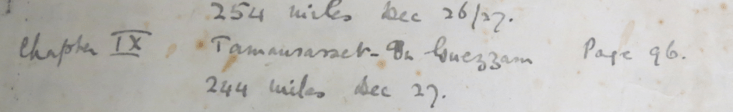 254 miles Dec 26/27.
Chapter IX Tamanrasset - In Guezzam Page 96.
244 miles Dec 27.